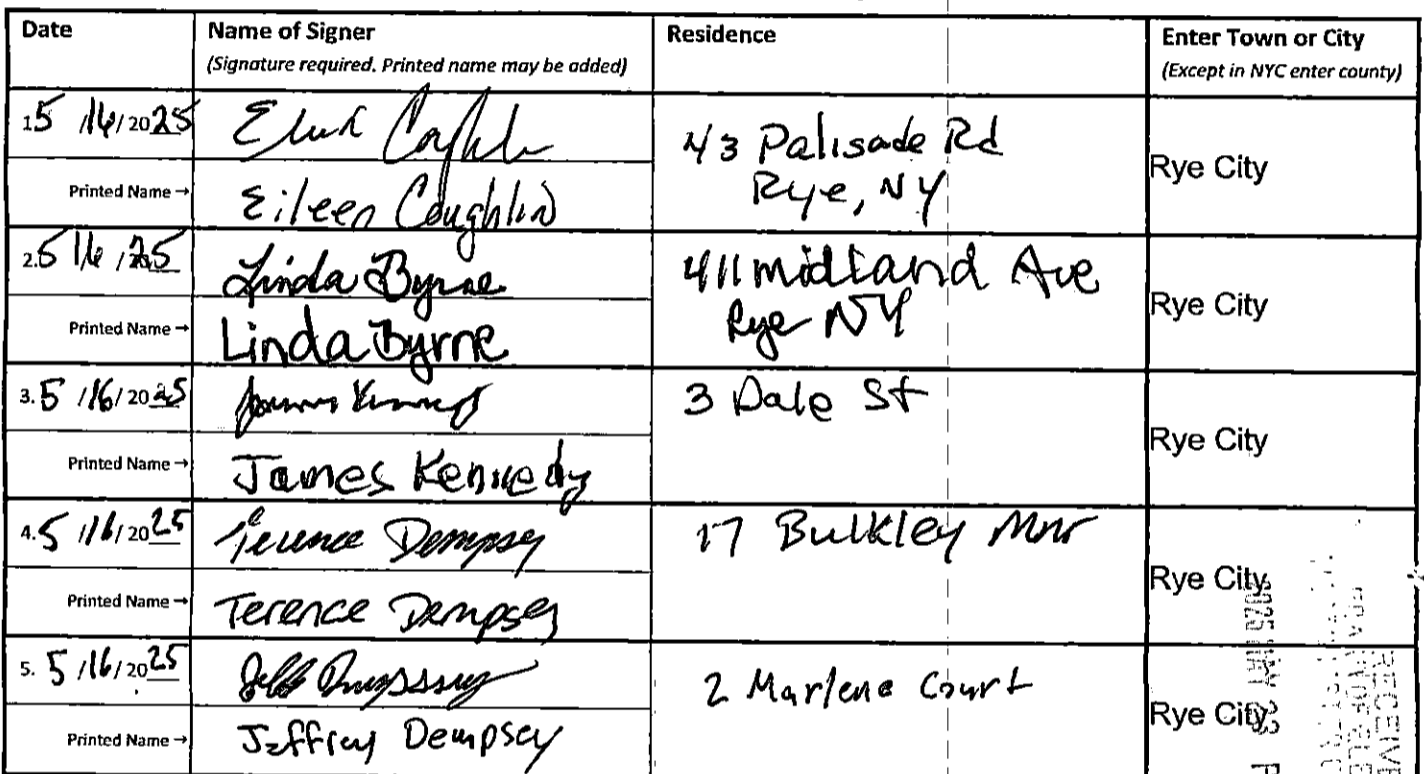 Date Name of Signer Residence Enter Town or City
(Signature required. Printed name may be added) (Except in NYC enter county)
1. 5 /16/2025 43 Palisade Rd
Rye, NY Rye City
Printed Name → Eileen Coughlin
2. 5 16 /25 Linda Byrne 411 midland Ave
Rye NY Rye City
Printed Name → Linda Byrne
3. 5 /16/2025 James Kennedy 3 Dale St
Rye City
Printed Name → James Kennedy
4. 5 /16/2025 Terence Dempsey 17 Bulkley Mnr
Rye City
Printed Name → Terence Dempsey
5. 5 /16/2025 Jeff Dempsey 2 Marlene Court
Rye City
Printed Name → Jeffrey Dempsey
RECEIVE
2025 MAY 23 P